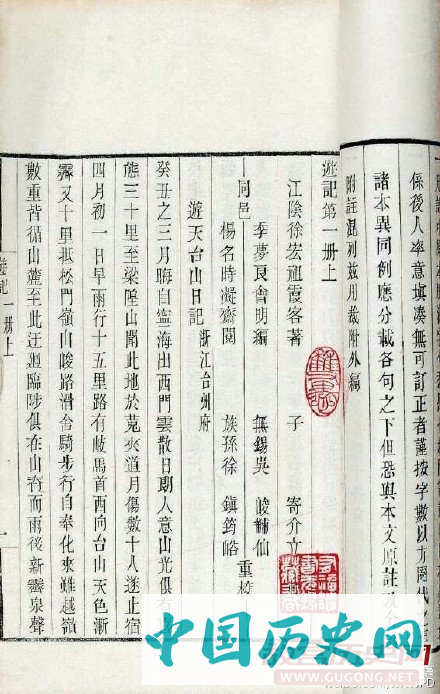 係後人率意填湊無可訂正者謹按字數以方圍代之
諸本異同例應分載各句之下但恐與本文原註
附註混列茲用截附外編
遊記第一册上
江陰徐宏祖霞客著 子 寄介立
季夢良會明編 無錫吳 峻 仙
同邑 重校
楊名時凝齋閱 族孫徐 鎮筠峪
遊天台山日記 浙江台州府
癸丑之三月晦自寧海出西門雲散日朗人意山光俱有
態三十里至梁隍山聞此地於菟夾道月傷數十人遂止宿
四月初一日早雨行十五里路有岐馬首西向台山天色漸
霽又十里抵松門嶺山峻路滑舍騎步行自奉化來雖越嶺
數重皆循山麓至此迂迴臨陟俱在山脊而雨後新霽泉聲
遊記一册上
中国历史网
WWW.GUGONG.NET